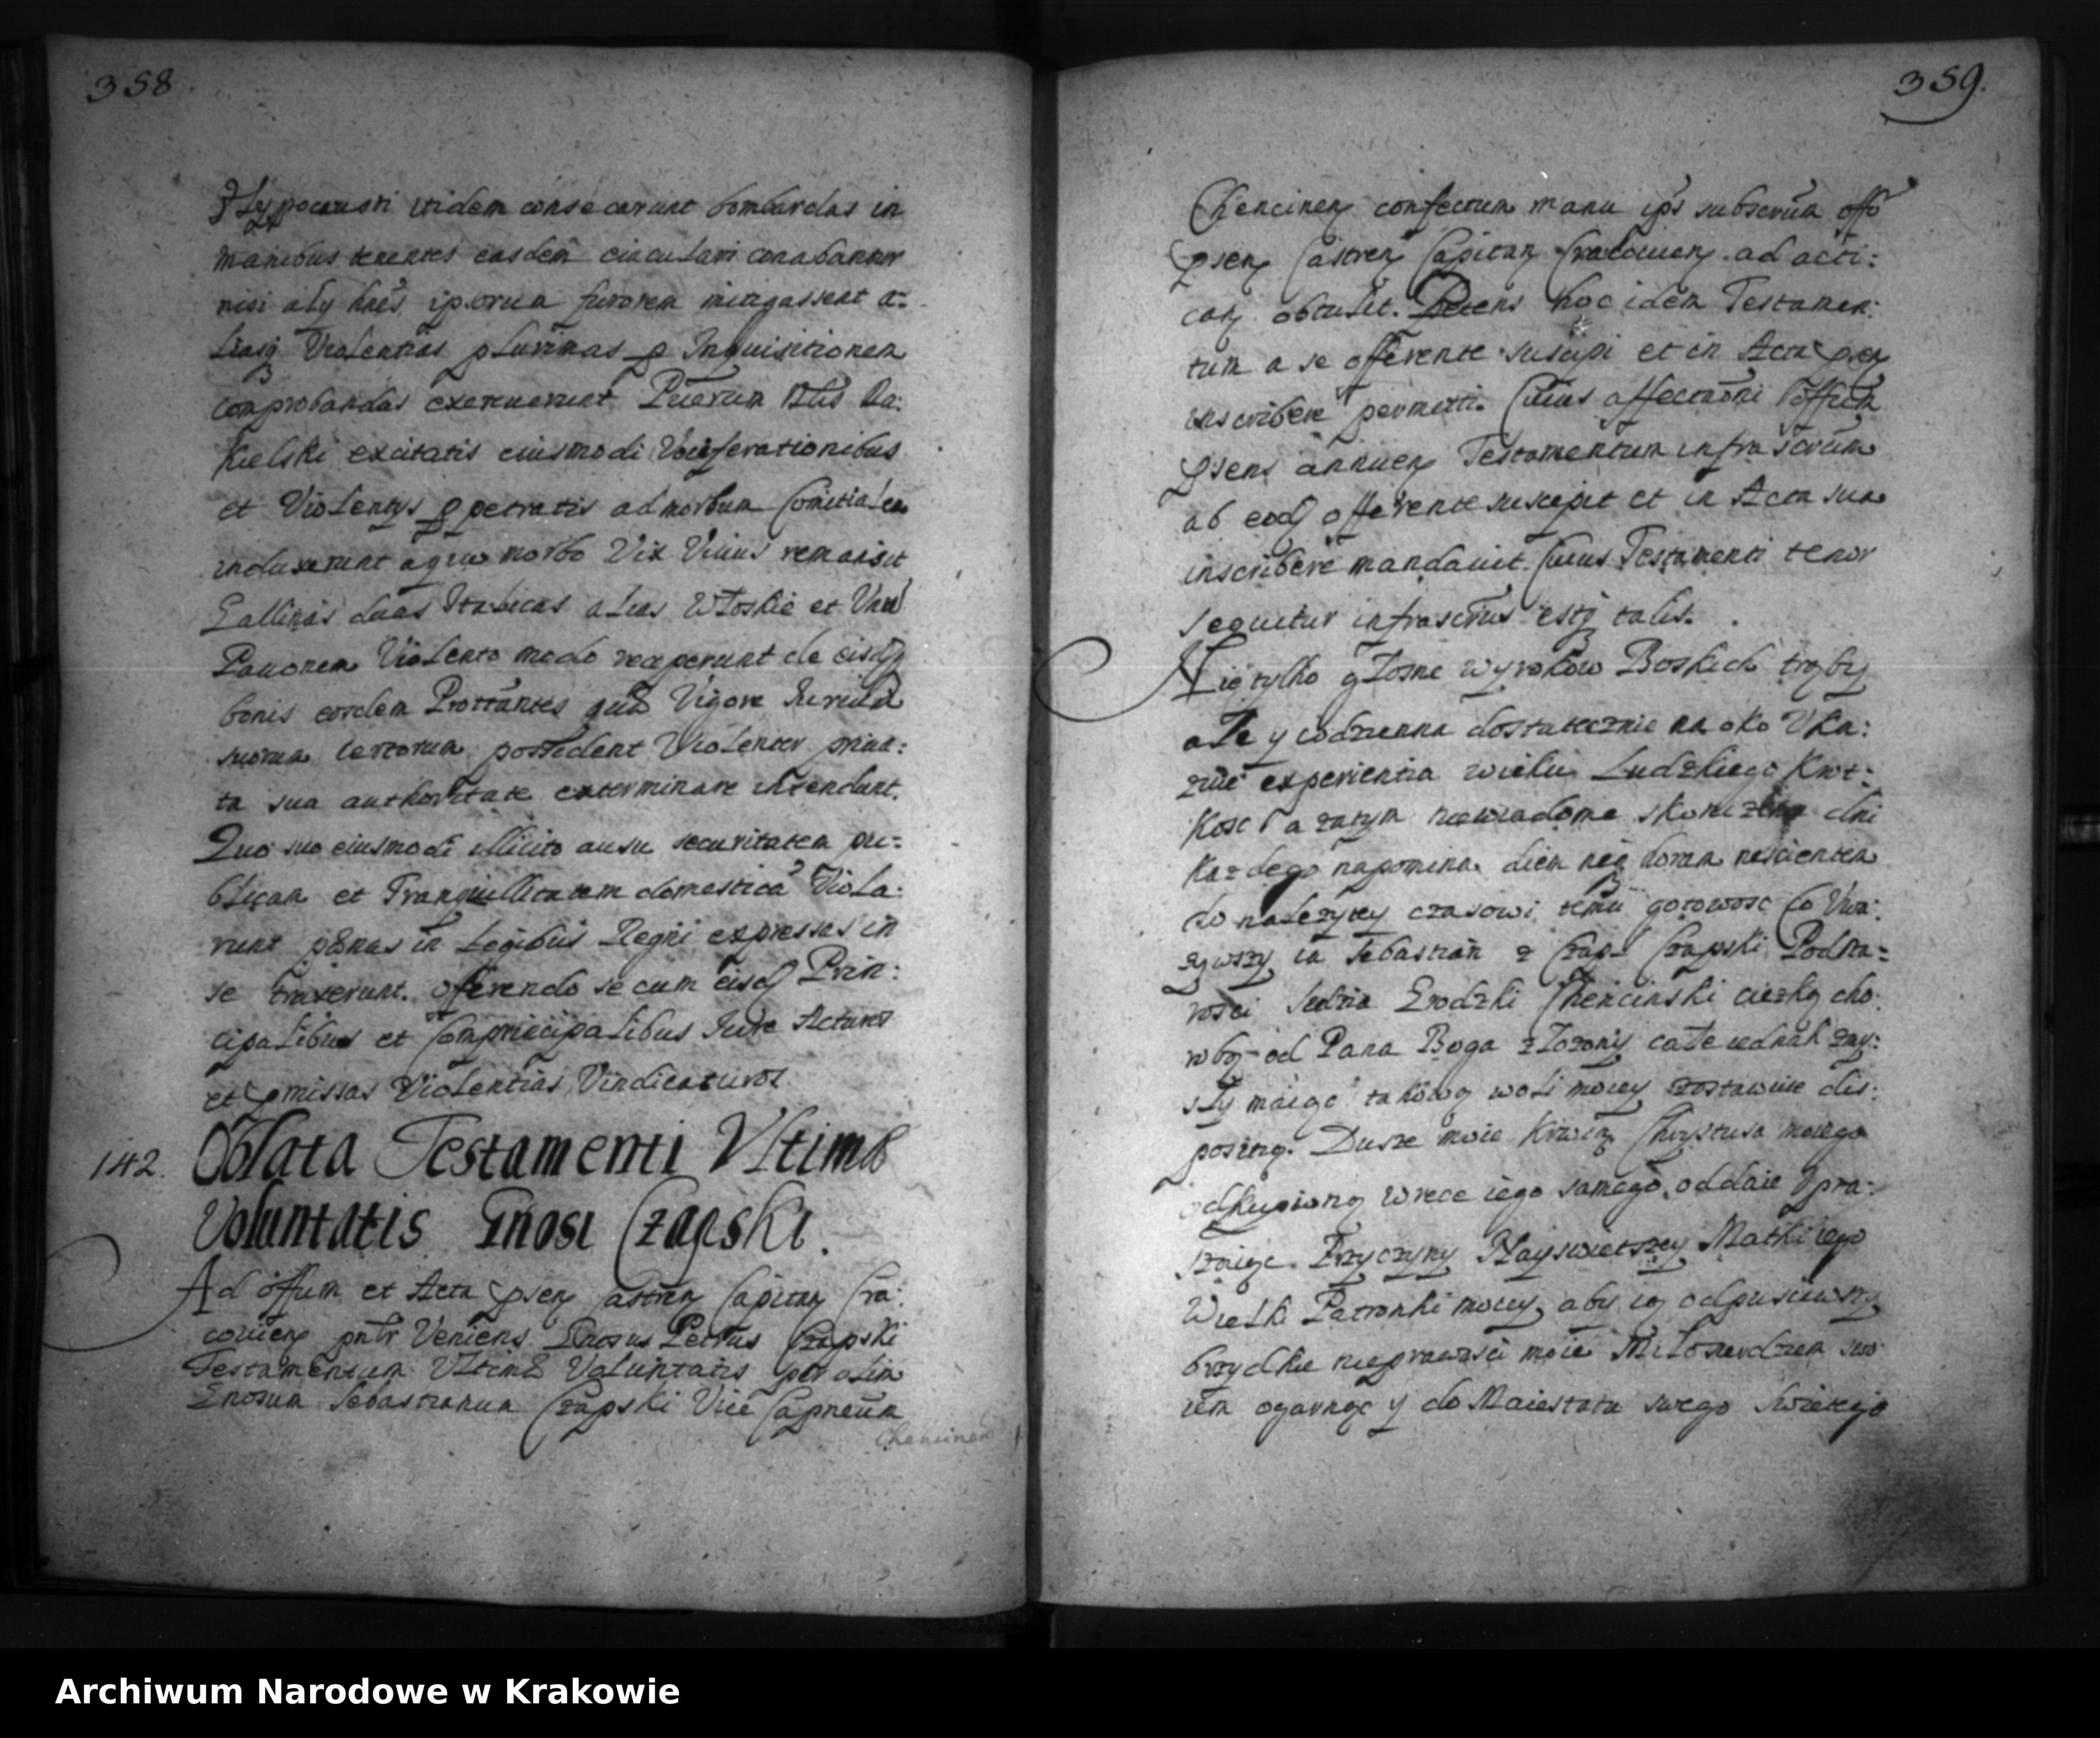 358
Hypocausti itidem consecarunt bombardas in
manibus tenentes easdem eiaculari conabantur
nisi aly hnes ipsorum furorem mitigassent a=
liasq Violentias plurimas p Inquisitionem
comprobandas exercuerunt Puerum Nlis Ra:
kielski excitatis eiusmodi Vociferationibus
et Violentys ppetratis ad morbum Comitialem
induxerunt a quo morbo Vix Vivus remansit
Gallinas duas Italicas alias Włoskie et Unu
Pauonem Violento modo receperunt de eisdq
bonis eosdem Prottantes
suorum possident Violenter priua:
ta sua authoritate exterminare intendunt.
Quo suo eiusmodi illicito ausu securitatem pu=
blicam et Tranquillitatem domestica Viola:
runt pænas in Legibus Regni expressas in
se traxerunt. offerendo se cum eisd Prin:
cipalibus et Comprincipalibus Iure Acturos
et pmissas Violentias Vindicaturos.
142. Oblata Testamenti Vltimæ
Voluntatis Gnosi Czapski.
Ad offum et Acta psen Castren Capitan Cra:
couien pntr Veniens Gnosus Petrus Czapski
Testamentum Vltimæ Voluntatis per olim
Gnosum Sebastianum Czapski Vice Capneum
Chencinen
359.
Chencinen confectum manu ips subscrum offo
psen Castren Capitan Cracouien ad acti:
can obtulit. Petens hoc idem Testamen:
tum a se offerente suscipi et in Acta psen
inscribere permitti. Cuius affectaoni Offium
psens annuen Testamentum infrascrum
ab eod offerente suscepit et in Acta sua
inscribere mandauit. Cuius Testamenti tenor
sequitur infrascrus estq talis.
Nie tylko głosne wyrokow Boskich trąby
ale y codzienna dostatecznie na oko Vka:
zuie experientia wieku Ludzkiego Krot:
kosc a zatym niewiadome skonczenie dni
kazdego napomina diem neq horam nescientem
do należytey czasowi temu gotowosc Co Vwa:
zywszy ia Sebastian z Czapl Czapski Podsta=
rosci Sedzia Grodzki Chencinski ciezką cho:
robą od Pana Boga złozony cale iednak zmy:
sły maiąc takową woli moiey zostawuie dis:
posityą. Dusze moie Krwią Chrystusa moiego
odkupioną w rece iego samego oddaie Vpra:
szaiąc Przyczyny Nayswietszey Matki iego
Wielki Patronki moiey, aby ią odpusciwszy
brzydkie nieprawosci moie Miłosierdziem swo
iem ogarnąc y do Maiestatu swego swietego
Archiwum Narodowe w Krakowie